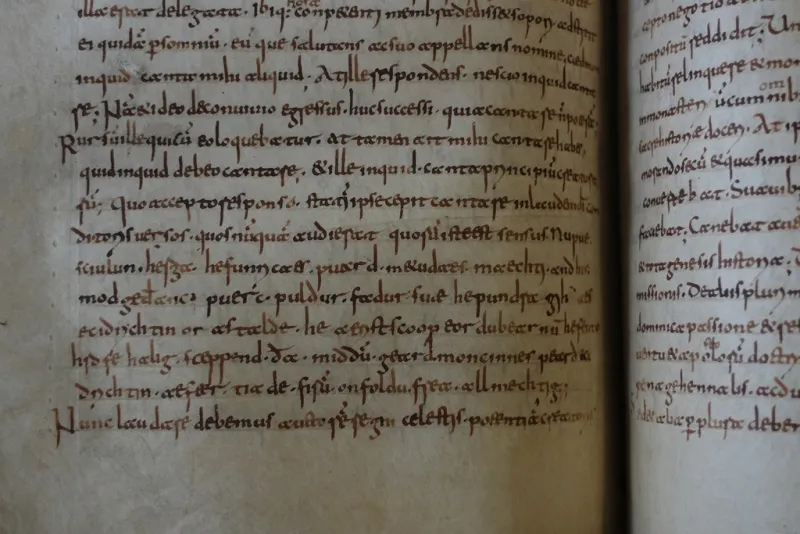 illa erat delegata. ibiq; conpetenti membra dedisset sopori. adstitit
ei quidā p somniū. eū que salutans ac suo appellans nomine, caedmon
inquid canta mihi aliquid. At ille respondens. nescio inquid canta
re; Nā & ideo de conuiuio egressus. huc successi. quia cantare n̄ poterā.
Rursū ille qui cū eo loquebatur. at tamen ait mihi cantare habes.
quid inquid debeo cantare, & ille inquid. canta principiū creatura
rū. Quo accepto responso. statī ipse cepit cantare in laudem dī con
ditoris versos. quos nūquā audierat quorū iste est sensus. Nu pue
sciulun. herga. hefunricaes. puard. metudaes. maechti. and his
modgedanc. puerc. puldur. fadur. sue he pundra gihuaes
ecidrichtin or astalde. he aerist scoop eordu bearnū hefen to
hrofe halig. sceppend. da. middū. geard moncinnes peard eci
drichtin. aefter. tiade. firū. on foldu. frea. allmechtig;
Nunc laudare debemus auctorē regni celestis. potentiā creatoris
cepto negotio
conpositū reddidit; Un
habitū relinquere & mon
monasteriū cum omnib
seriem doceri. At ip
conuertebat. Suauib
faciebat. Canebat
genesis historia.
missionis. De aliis plurim
dominica passione & re
uentu & apostolorū doctri
gehennalis. ac du